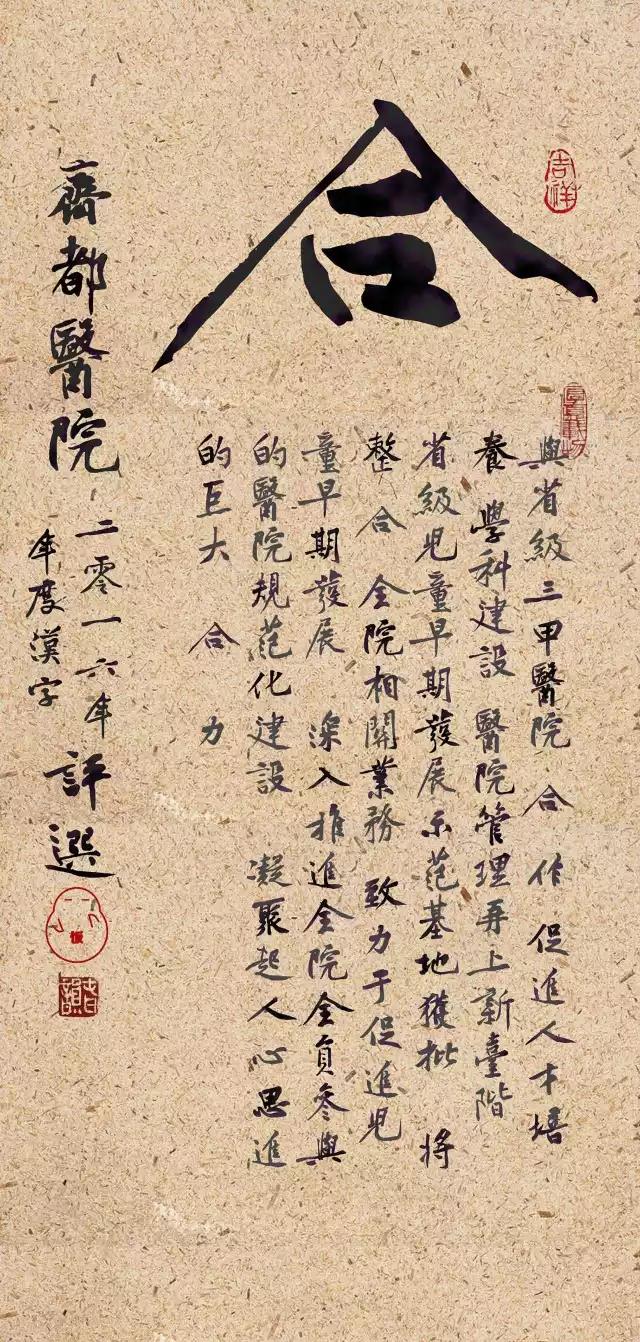 合
與省級三甲醫院 合 作促進人才培
養 學科建設 醫院管理再上新臺階
省級兒童早期發展示范基地獲批 將
整 合 全院相關業務 致力于促進兒
童早期發展 深入推進全院全員參與
的醫院規范化建設 凝聚起人心思進
的巨大 合 力
齊都醫院
二零一六年
年度漢字
評選